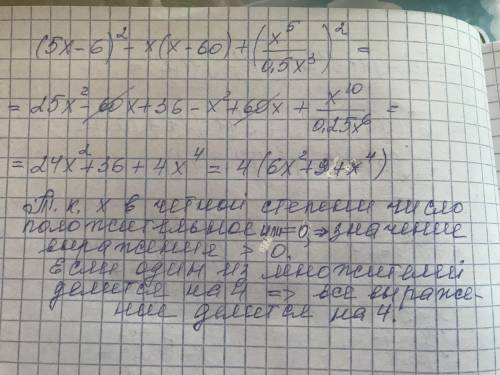 (5x-6)² - x(x-60) + (x⁵/0,5x³)² =
= 25x² - 60x + 36 - x² + 60x + x¹⁰/0,25x⁶ =
= 24x² + 36 + 4x⁴ = 4(6x² + 9 + x⁴)
Т. к. x в четной степени число
положительное или =0, ⇒ значение
выражения > 0.
Если один из множителей
делится на 4 => все выраже-
ние делится на 4.